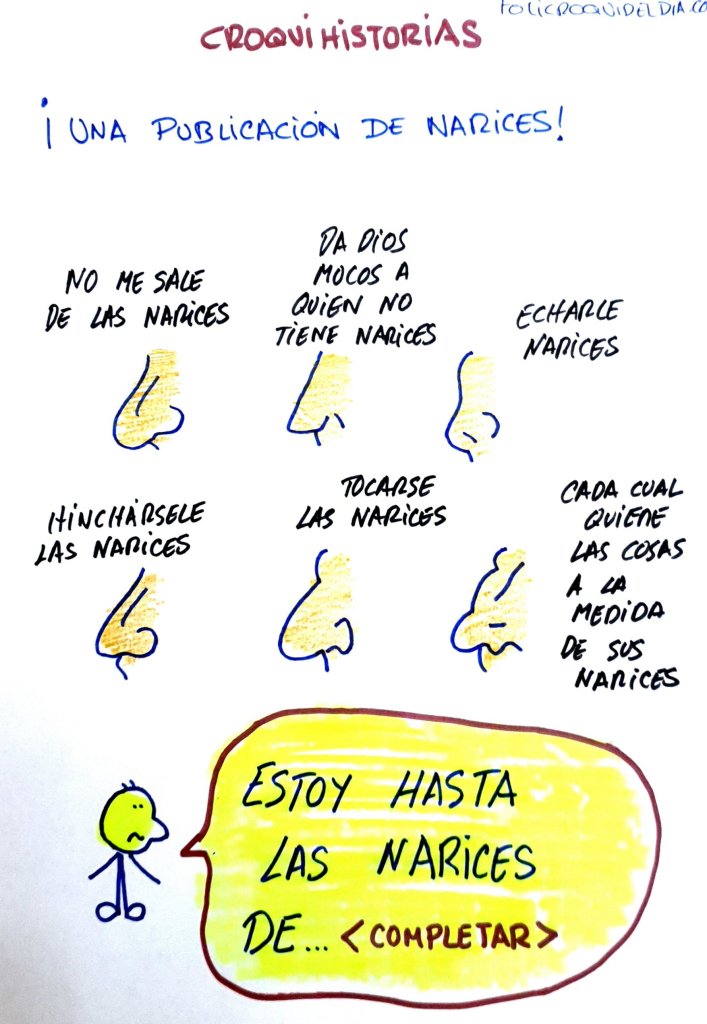 CROQUIHISTORIAS
¡UNA PUBLICACIÓN DE NARICES!
NO ME SALE
DE LAS NARICES
DA DIOS
MOCOS A
QUIEN NO
TIENE NARICES
ECHARLE
NARICES
HINCHÁRSELE
LAS NARICES
TOCARSE
LAS NARICES
CADA CUAL
QUIERE
LAS COSAS
A LA
MEDIDA
DE SUS
NARICES
ESTOY HASTA
LAS NARICES
DE... <COMPLETAR>